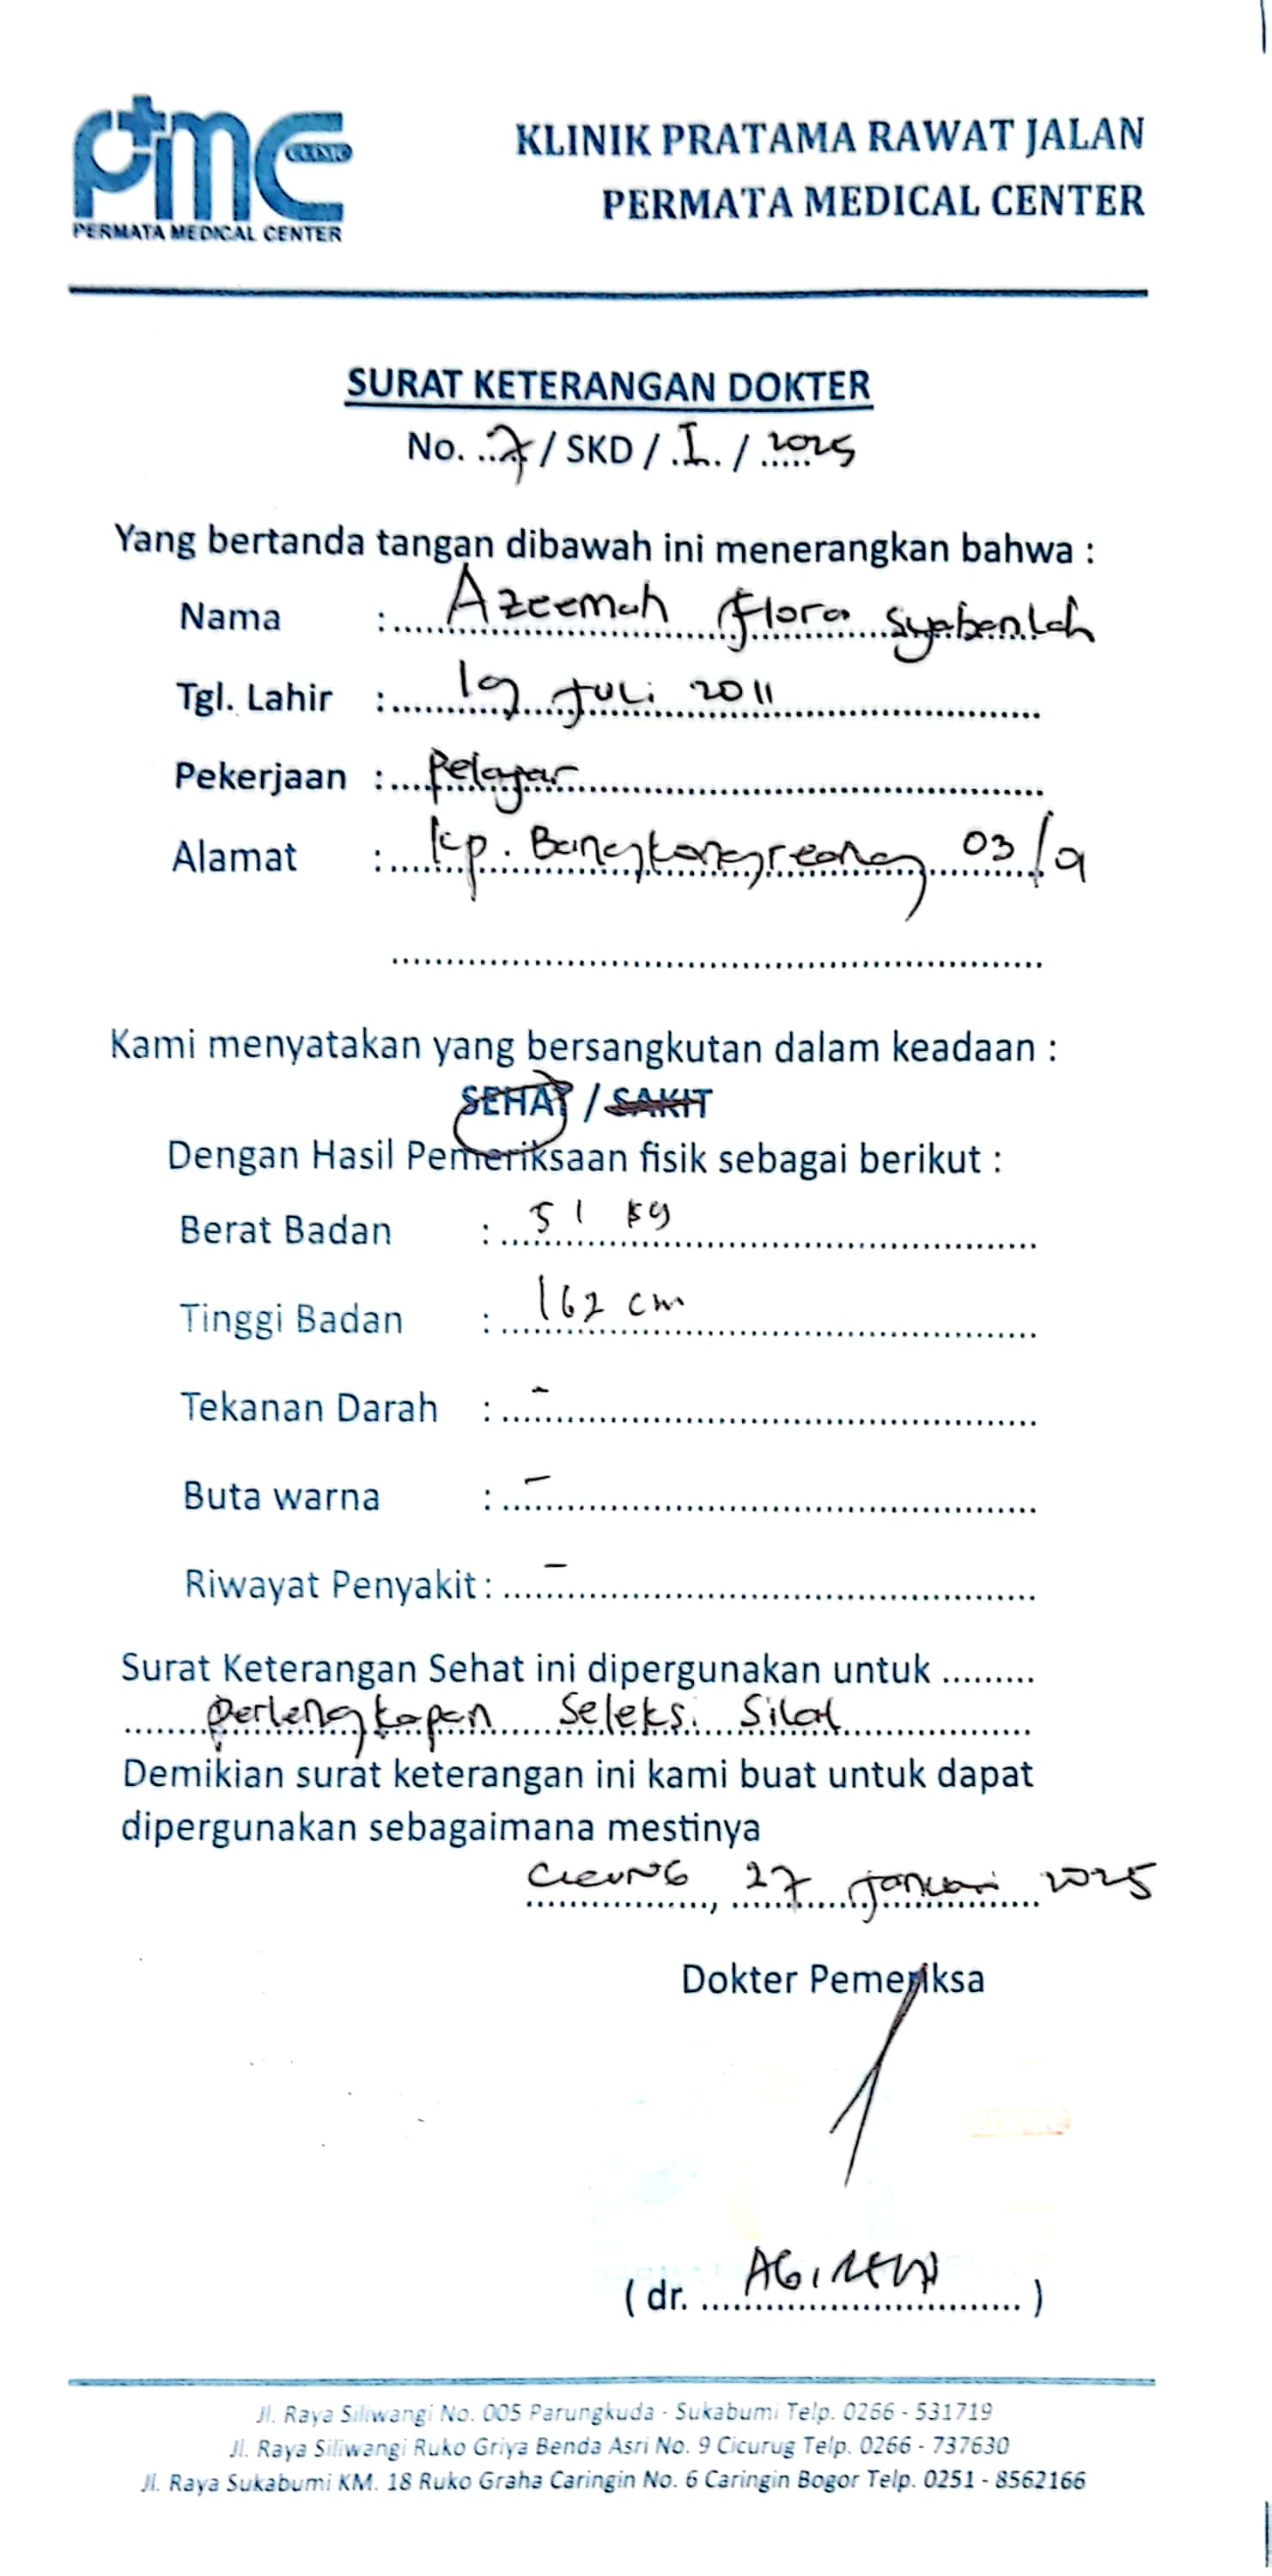 PMC CLINIC
PERMATA MEDICAL CENTER
KLINIK PRATAMA RAWAT JALAN
PERMATA MEDICAL CENTER
SURAT KETERANGAN DOKTER
No. 7 / SKD / I / 2025
Yang bertanda tangan dibawah ini menerangkan bahwa :
Nama : Azeemah Flora Syabanlah
Tgl. Lahir : 19 Juli 2011
Pekerjaan : Pelajar
Alamat : Kp. Bangkongreang 03/9
Kami menyatakan yang bersangkutan dalam keadaan :
SEHAT / SAKIT
Dengan Hasil Pemeriksaan fisik sebagai berikut :
Berat Badan : 51 kg
Tinggi Badan : 162 cm
Tekanan Darah : -
Buta warna : -
Riwayat Penyakit : -
Surat Keterangan Sehat ini dipergunakan untuk .........
perlengkapan Seleksi Silat
Demikian surat keterangan ini kami buat untuk dapat
dipergunakan sebagaimana mestinya
27 Januari 2025
Dokter Pemeriksa
( dr. )
Jl. Raya Siliwangi No. 005 Parungkuda - Sukabumi Telp. 0266 - 531719
Jl. Raya Siliwangi Ruko Griya Benda Asri No. 9 Cicurug Telp. 0266 - 737630
Jl. Raya Sukabumi KM. 18 Ruko Graha Caringin No. 6 Caringin Bogor Telp. 0251 - 8562166